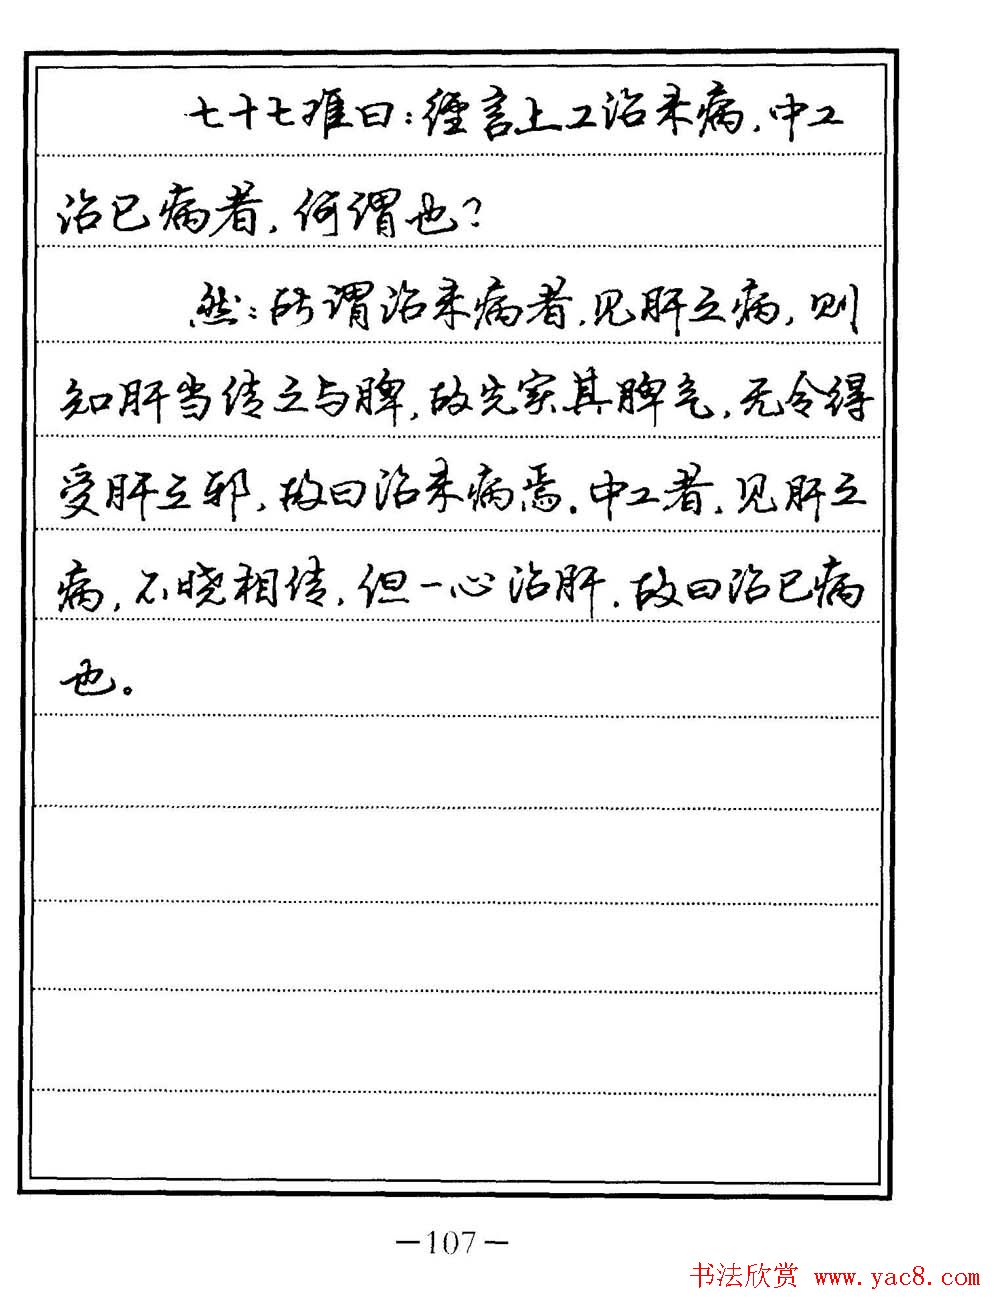 七十七难曰：经言上工治未病，中工
治已病者，何谓也？
然：所谓治未病者，见肝之病，则
知肝当传之与脾，故先实其脾气，无令得
受肝之邪，故曰治未病焉。中工者，见肝之
病，不晓相传，但一心治肝，故曰治已病
也。
—107—
书法欣赏 www.yac8.com